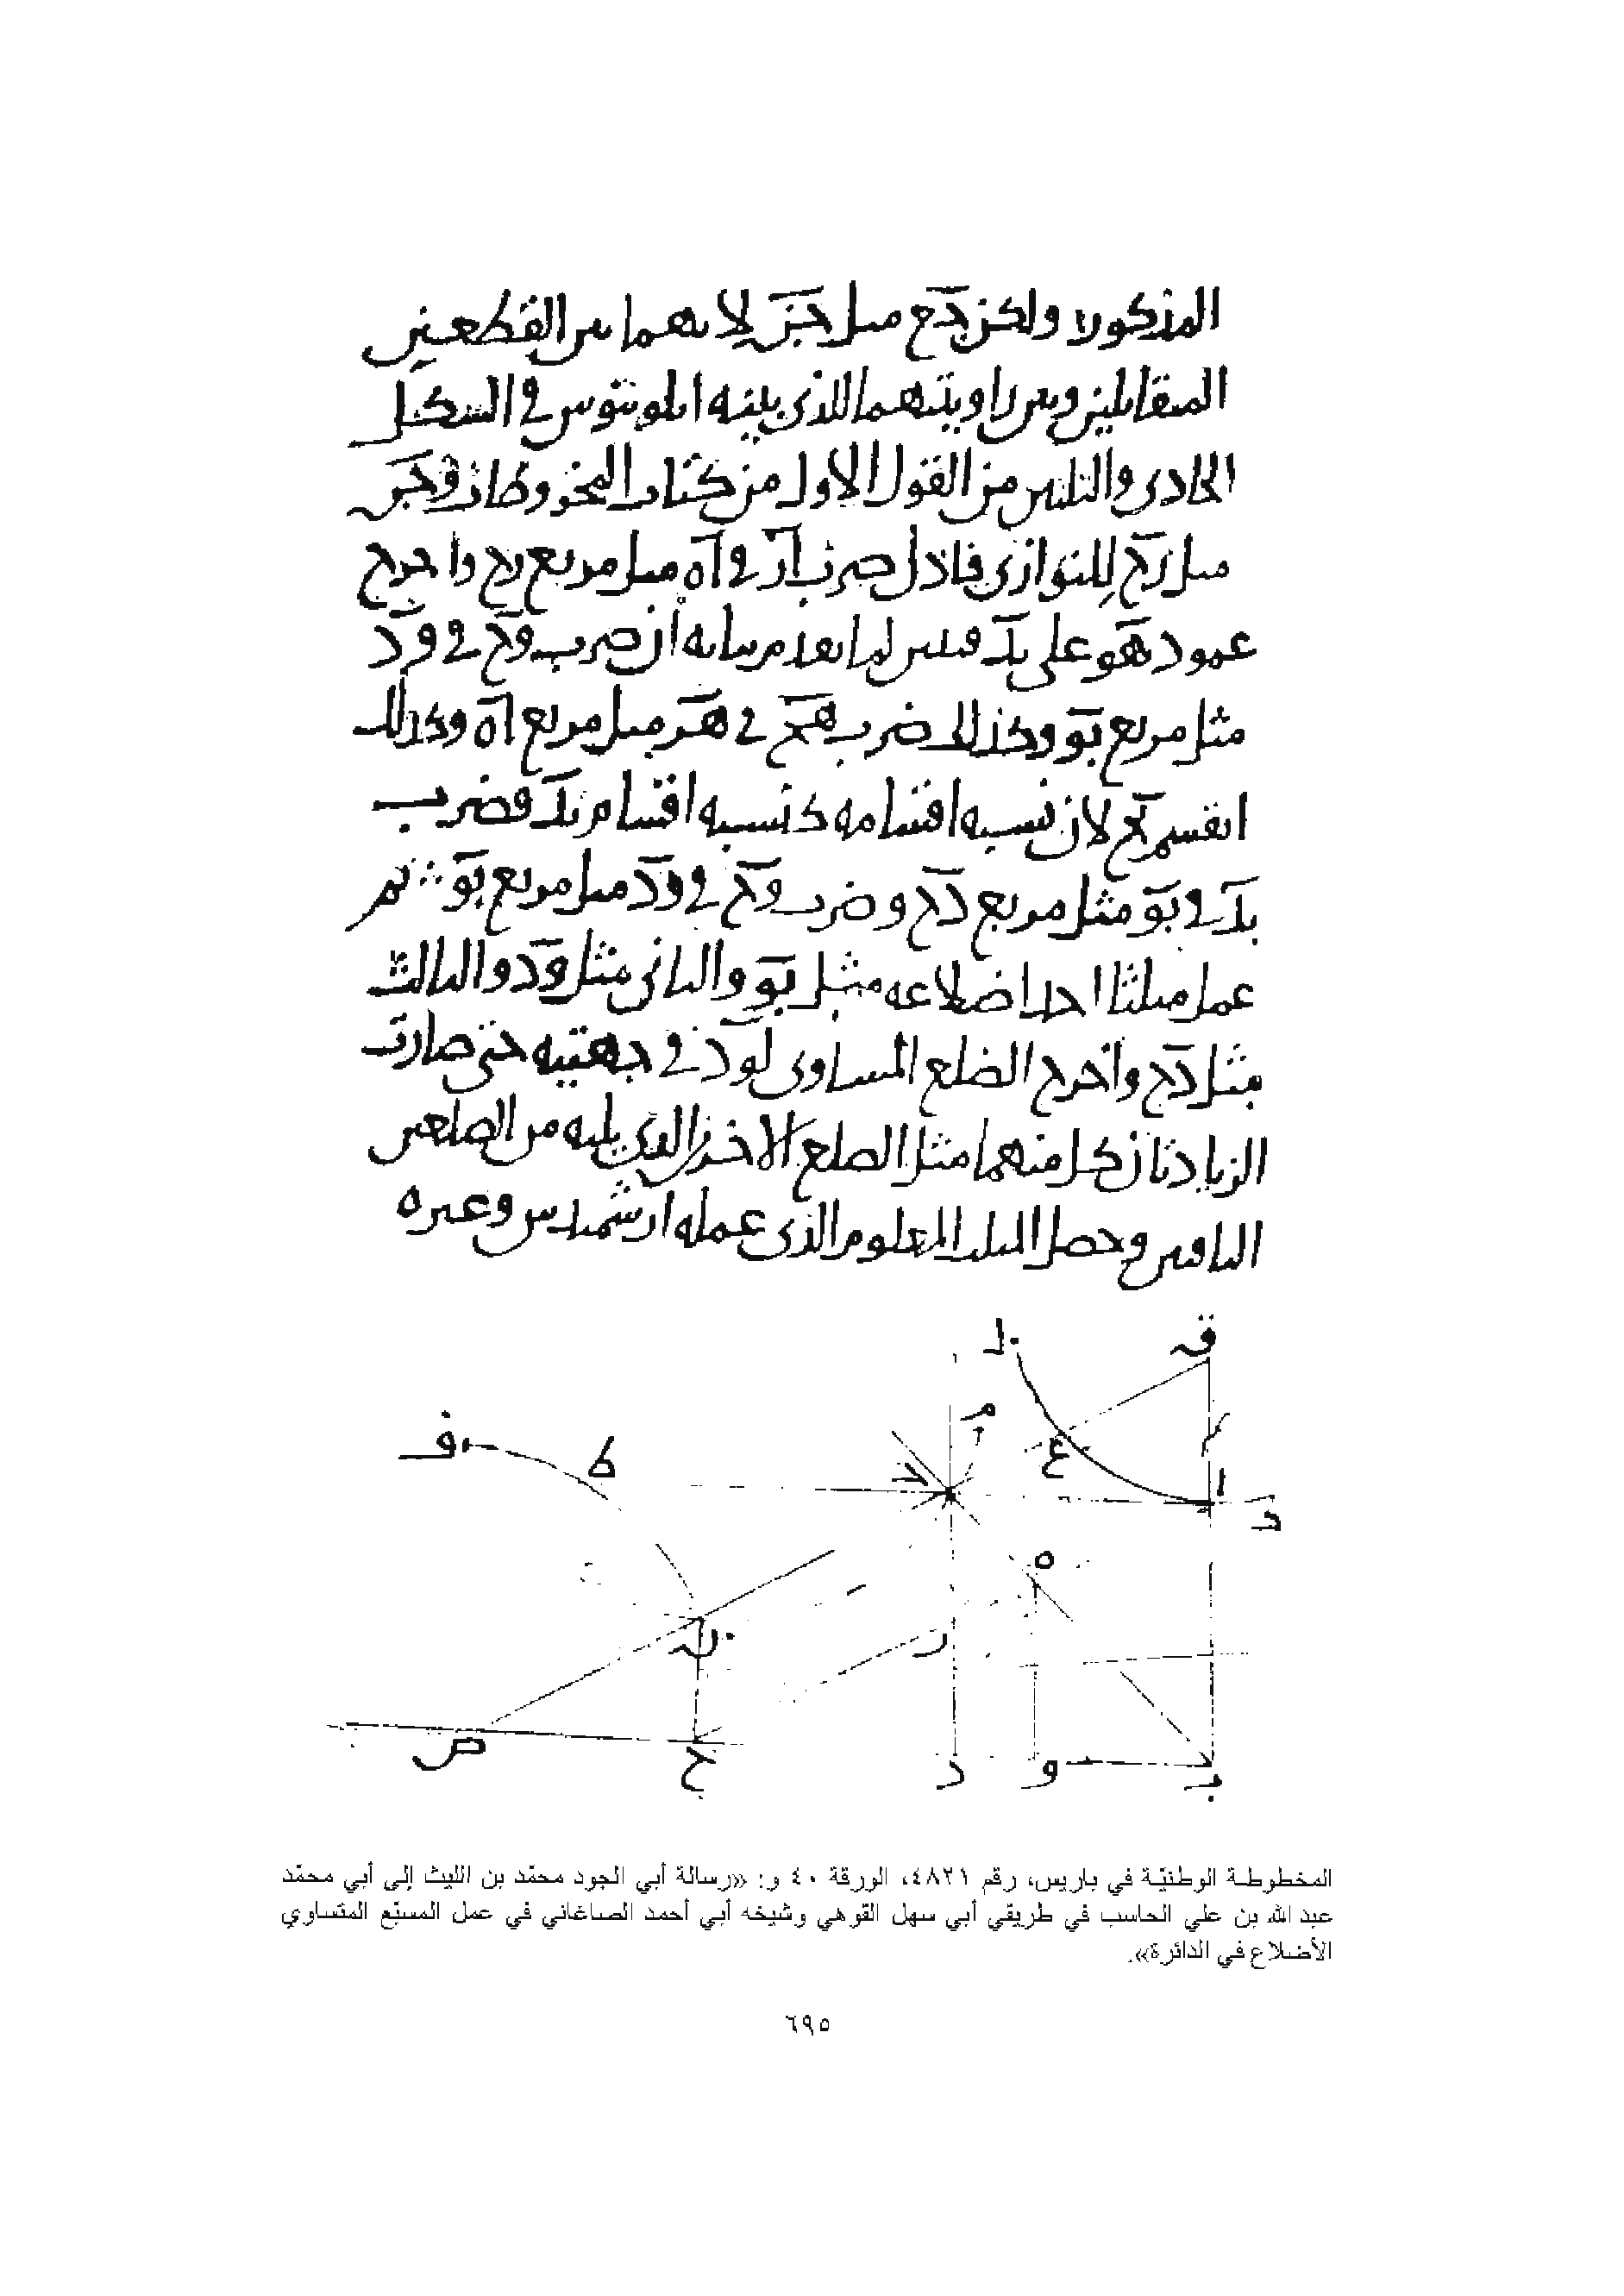 المذكورة ولكن جع مثل جز لانهما بين القطعين
المتقابلين وبين زاويتهما للذي بينه ابلونيوس في الشكل
الحادي والثلثين من القول الاول من كتاب المخروطات وجز
مثل زح للتوازي فاذا ضرب از في اه مثل مربع دح واخرج
عمود هو على بد فتبين لما بعد مرسابه أن ضرب وح في ود
مثل مربع بو وكذلك ضرب هح في هز مثل مربع اه وكذلك
انقسم اح لان نسبه اقسامه كنسبه اقسام بد فضرب
بد في بو مثل مربع دح وضرب وح في ود مثل مربع بو ثم
عمل مثلثا احد اضلاعه مثل بو والثاني مثل ود والثالث
مثل دح وأخرج الضلع المساوي لود في جهتيه حتى صارت
الزيادتان كل منهما مثل الضلع الاخر الذي يليه من الضلعين
الباقيين وحصل المثلث المعلوم الذي عمله ارشميدس وغيره
ق
ل
م
ف
ط
ع
ا
ه
ن
ر
ص
ح
د
و
ب
المخطوطة الوطنيّة في باريس، رقم ٤٨٢١، الورقة ٤٠ و: «رسالة أبي الجود محمّد بن الليث إلى أبي محمّد
عبد الله بن علي الحاسب في طريقي أبي سهل القوهي وشيخه أبي أحمد الصاغاني في عمل المسبّع المتساوي
الأضلاع في الدائرة».
٦٩٥